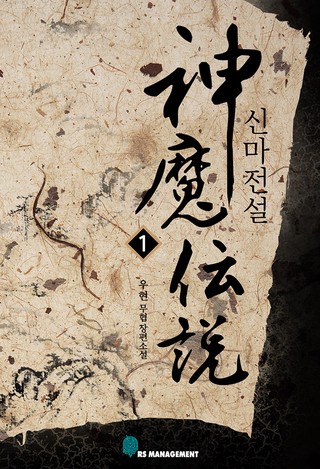 神魔伝説
신마전설
1
우현 무협 장편소설
RS MANAGEMENT